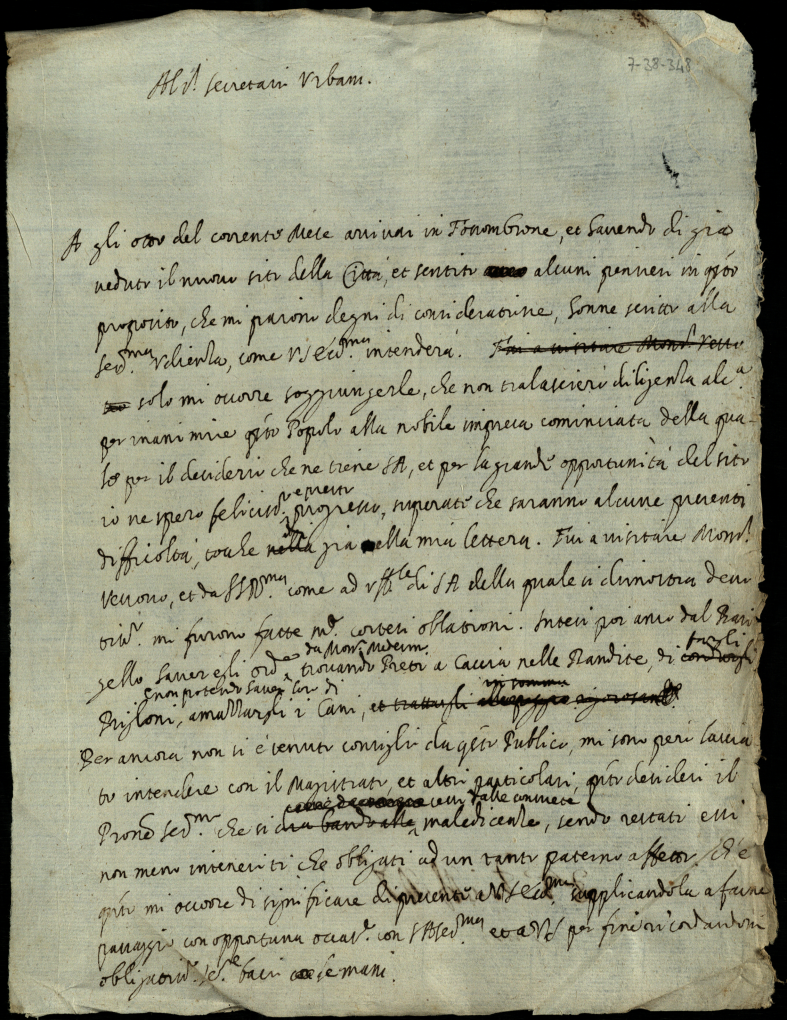 7-38-348
Al S.r secretario Urbani.
A gli otto del corrente Mese arrivai in Fossombrone, et havendo di già
veduto il nuovo sito della Città, et sentito alcuni pensieri in q.sto
proposito, che mi paiono degni di consideratione, honne scritto alla
Ser.ma Vedienza, come intenderà. Fui a visitare Mons.r Vesco
solo mi occorre soggiungerle, che non tralascierò diligenza alc.a
per inanimire q.sto Popolo alla nobile impresa cominciata della qua
le per il desiderio che ne tiene SA, et per la grande opportunità del sito
io ne spero felicis.o e presto progresso, superate che saranno alcune presenti
difficoltà, tocche già nella mia lettera. Fui a visitare Mons.r
Vescovo, et da SSR.ma come ad di SA della quale si dimostra devo
tiss.o mi furono fatte m.o cortesi oblationi. Intesi poi anco dal Bari
gello haver egli ord.e da Mons. Medesim.o trovando Preti a Caccia nelle Bandite, di torgli
non potendo haver lor di
Prigioni, amazzargli i Cani, et trattargli in somma
Per ancora non si è tenuto consiglio da q.sto Publico, mi sono però lascia
to intendere con il Magistrato, et altri particolari, q.sto desideri il
Prone Ser.mo che si dalle consuete
dia bando alle maledicenze, sendo restati essi
non meno inteneriti che obligati ad un tanto paterno affetto, ch'è
q.to mi occorre di significare di presente a supplicandola a farne
passaggio con opportuna occas.e con SASer.ma et a VS per fine ricordandomi
obligatis.o se.re bacio le mani.